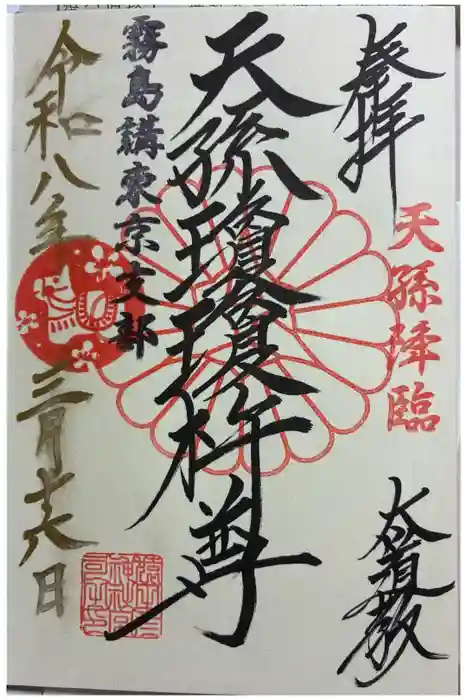 奉拝
天孫降臨
大道教
天孫瓊瓊杵尊
霧島講東京支部
令和八年
三月十八日